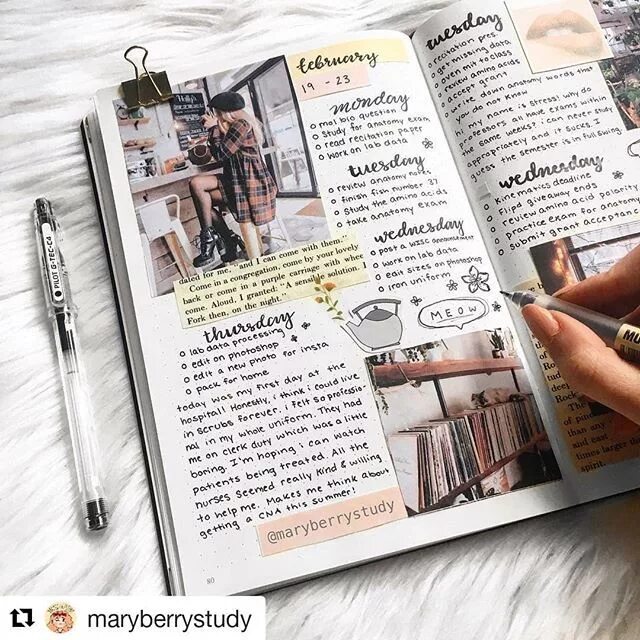 february
19 - 23
monday
o mol bio question
o Study for anatomy exam
o read recitation paper
o work on lab data
tuesday
o review anatomy notes
o finish fish number 37
o Study the amino acids
o take anatomy exam
wednesday
o post a WISC announcement
o work on lab data
o edit sizes on photoshop
o iron uniform
MEOW
daled for me," "and I can come with them."
Come in a congregation, come by your lovely
back or someone in a purple carriage with whee
come. Aloud, I granted: "A sensible solution.
Fork then, on the night."
thursday
o lab data processing
o edit on photoshop
o edit a new photo for insta
o pack for home
today was my first day at the
hospital! Honestly, i think i could live
in scrubs forever. i felt so professio-
nal in my whole uniform. They had
me on clerk duty which was a little
boring. I'm hoping i can watch
patients being treated. All the
nurses seemed really kind & willing
to help me. Makes me think about
getting a CNA this summer!
@maryberrystudy
80
tuesday
o recitation pres.
o get missing data
o even mit to class
o review amino acids
o accept grant
o write down anatomy words that
you do not know
hi, my name is stress. why do
professors all have exams within
the same weeks? i can never study
appropriately and it sucks. I
guess the semester is in full swing.
wednesday
o kinematics deadline
o Flipd giveaway ends
o review amino acid polarity
o practice exam for anatomy
o submit grant acceptance
deep
Rock
The
of
than any
and east
times larger
spirit.
PILOT G-TEC-C4
MU
maryberrystudy